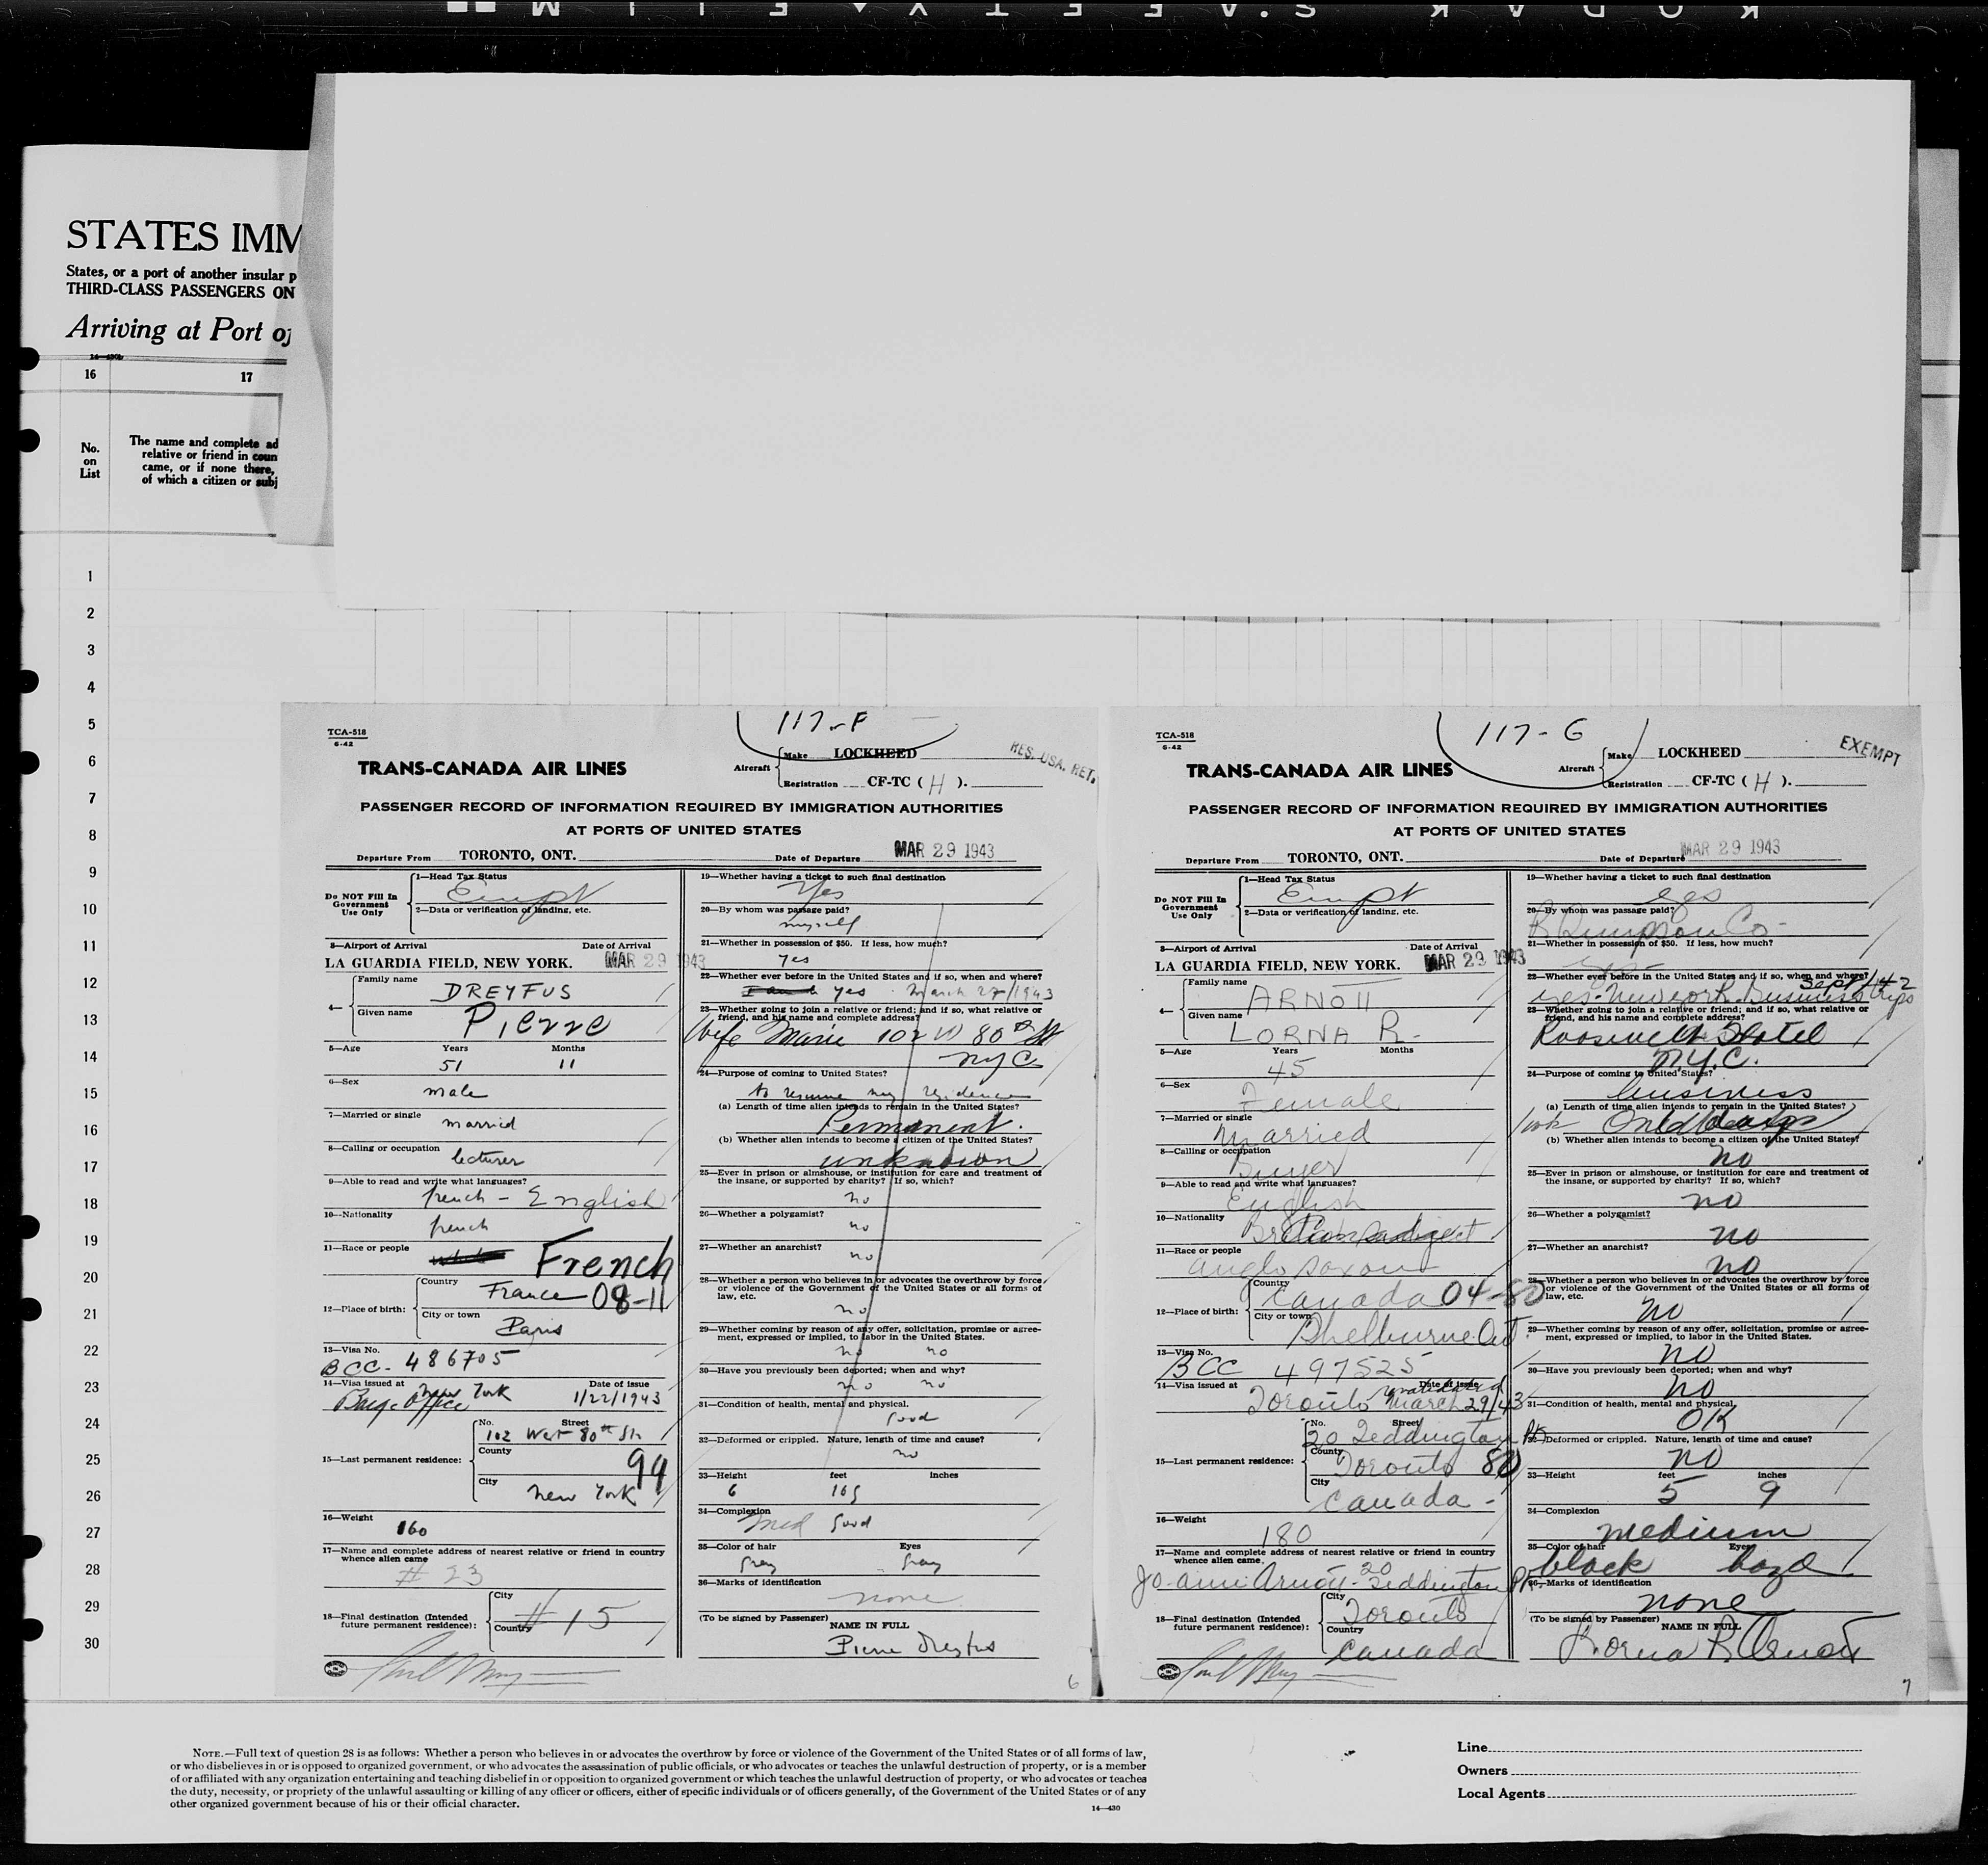 KODAK S.A.FETY FILM
STATES IMM
States, or a port of another insular p
THIRD-CLASS PASSENGERS ON
Arriving at Port of
16 17
No. on List
The name and complete ad
relative or friend in coun
came, or if none there,
of which a citizen or subj
1
2
3
4
5
6
7
8
9
10
11
12
13
14
15
16
17
18
19
20
21
22
23
24
25
26
27
28
29
30
117-F
TCA-518
6-42
TRANS-CANADA AIR LINES
Aircraft
Make LOCKHEED
Registration CF-TC (H).
RES. USA. RET.
PASSENGER RECORD OF INFORMATION REQUIRED BY IMMIGRATION AUTHORITIES
AT PORTS OF UNITED STATES
Departure From TORONTO, ONT. Date of Departure MAR 29 1943
Do NOT Fill In Government Use Only
1—Head Tax Status
2—Data or verification of landing, etc.
3—Airport of Arrival Date of Arrival
LA GUARDIA FIELD, NEW YORK. MAR 29 1943
4— Family name DREYFUS
Given name Pierre
5—Age Years 51 Months 11
6—Sex male
7—Married or single married
8—Calling or occupation lecturer
9—Able to read and write what languages? french - English
10—Nationality french
11—Race or people French
12—Place of birth: Country France 08-11
City or town Paris
13—Visa No. BCC- 486705
14—Visa issued at New York Date of issue 1/22/1943
office
15—Last permanent residence: No. Street 102 West 80th St.
County 99
City New York
16—Weight 160
17—Name and complete address of nearest relative or friend in country
whence alien came
# 23
18—Final destination (Intended future permanent residence): City
Country # 15
19—Whether having a ticket to such final destination
Yes
20—By whom was passage paid?
myself
21—Whether in possession of $50. If less, how much?
Yes
22—Whether ever before in the United States and if so, when and where?
yes March 27/1943
23—Whether going to join a relative or friend; and if so, what relative or
friend, and his name and complete address?
Wife Marie 102 W 80th St
NYC
24—Purpose of coming to United States?
to resume my residence
(a) Length of time alien intends to remain in the United States?
Permanent.
(b) Whether alien intends to become a citizen of the United States?
unknown
25—Ever in prison or almshouse, or institution for care and treatment of
the insane, or supported by charity? If so, which?
no
26—Whether a polygamist?
no
27—Whether an anarchist?
no
28—Whether a person who believes in or advocates the overthrow by force
or violence of the Government of the United States or all forms of
law, etc.
no
29—Whether coming by reason of any offer, solicitation, promise or agree-
ment, expressed or implied, to labor in the United States.
no no
30—Have you previously been deported; when and why?
no no
31—Condition of health, mental and physical.
good
32—Deformed or crippled. Nature, length of time and cause?
no
33—Height feet inches
6
34—Complexion
med good
35—Color of hair Eyes
Gray Gray
36—Marks of identification
none
(To be signed by Passenger) NAME IN FULL
Pierre Dreyfus
6
117-G
TCA-518
6-42
TRANS-CANADA AIR LINES
Aircraft
Make LOCKHEED
Registration CF-TC (H).
EXEMPT
PASSENGER RECORD OF INFORMATION REQUIRED BY IMMIGRATION AUTHORITIES
AT PORTS OF UNITED STATES
Departure From TORONTO, ONT. Date of Departure MAR 29 1943
Do NOT Fill In Government Use Only
1—Head Tax Status
2—Data or verification of landing, etc.
3—Airport of Arrival Date of Arrival
LA GUARDIA FIELD, NEW YORK. MAR 29 1943
4— Family name ARNOTT
Given name LORNA R.
5—Age Years 45 Months
6—Sex Female
7—Married or single Married
8—Calling or occupation Buyer
9—Able to read and write what languages? English
10—Nationality
11—Race or people anglo saxon
12—Place of birth: Country Canada 04-80
City or town Shelburne Ont.
13—Visa No. BCC 497525
14—Visa issued at Toronto Date of issue March 29/43
15—Last permanent residence: No. Street 20 Teddington Pk
County Toronto 80
City Canada -
16—Weight 180
17—Name and complete address of nearest relative or friend in country
whence alien came.
Arnott - 20 Teddington Pk.
18—Final destination (Intended future permanent residence): City Toronto
Country Canada
19—Whether having a ticket to such final destination
yes
20—By whom was passage paid?
R Simpson Co-
21—Whether in possession of $50. If less, how much?
yes-
22—Whether ever before in the United States and if so, when and where?
Sept/42
yes-New York-Business trips
23—Whether going to join a relative or friend; and if so, what relative or
friend, and his name and complete address?
Roosevelt Hotel
N.Y.C.
24—Purpose of coming to United States?
business
(a) Length of time alien intends to remain in the United States?
(b) Whether alien intends to become a citizen of the United States?
no
25—Ever in prison or almshouse, or institution for care and treatment of
the insane, or supported by charity? If so, which?
no
26—Whether a polygamist?
no
27—Whether an anarchist?
no
28—Whether a person who believes in or advocates the overthrow by force
or violence of the Government of the United States or all forms of
law, etc.
no
29—Whether coming by reason of any offer, solicitation, promise or agree-
ment, expressed or implied, to labor in the United States.
no
30—Have you previously been deported; when and why?
no
31—Condition of health, mental and physical.
OK
32—Deformed or crippled. Nature, length of time and cause?
no
33—Height feet 5 inches 9
34—Complexion
medium
35—Color of hair Eyes
black hazel
36—Marks of identification
none
(To be signed by Passenger) NAME IN FULL
Lorna R Arnott
7
NOTE.—Full text of question 28 is as follows: Whether a person who believes in or advocates the overthrow by force or violence of the Government of the United States or of all forms of law,
or who disbelieves in or is opposed to organized government, or who advocates the assassination of public officials, or who advocates or teaches the unlawful destruction of property, or is a member
of or affiliated with any organization entertaining and teaching disbelief in or opposition to organized government or which teaches the unlawful destruction of property, or who advocates or teaches
the duty, necessity, or propriety of the unlawful assaulting or killing of any officer or officers, either of specific individuals or of officers generally, of the Government of the United States or of any
other organized government because of his or their official character.
14—430
Line
Owners
Local Agents